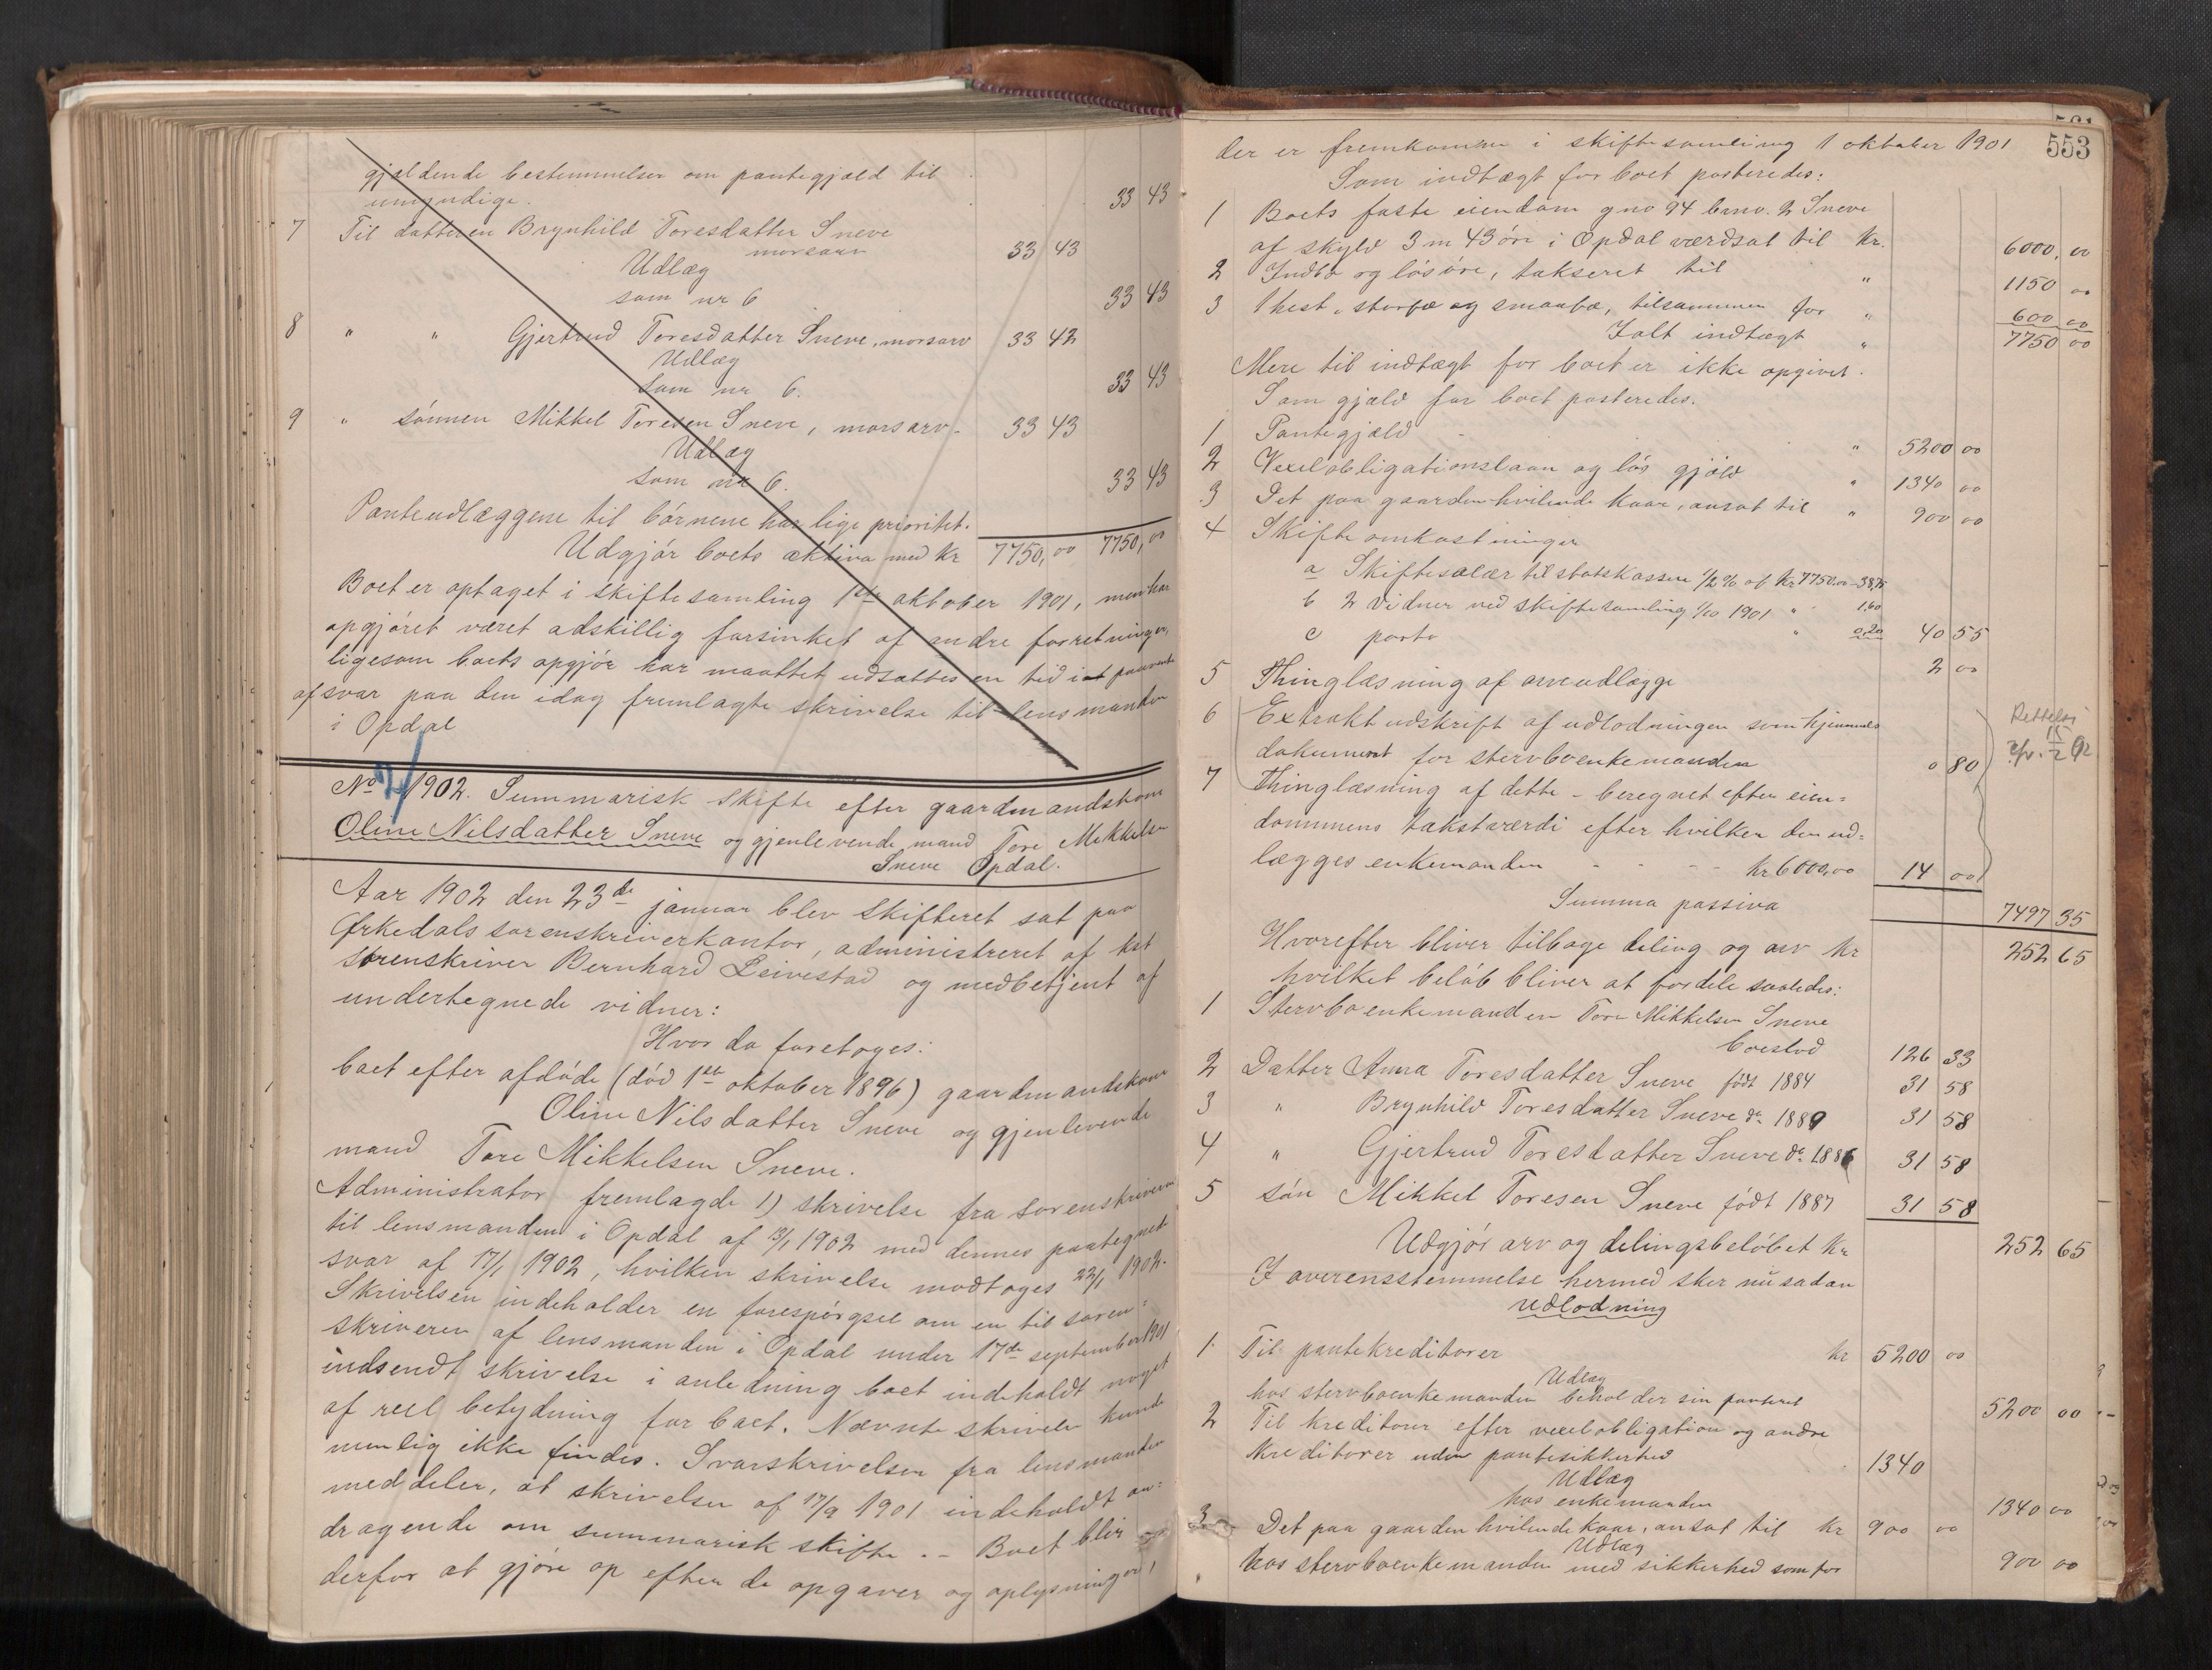 gjældende bestemmelser om pantegjæld til
umyndige. 33 43
7 Til datteren Brynhild Toresdatter Sneve
morsarv 33 43
Udlæg
som nr 6 33 43
8 " " Gjertrud Toresdatter Sneve, morsarv 33 42
Udlæg
som nr 6. 33 43
9 " sønnen Mikkel Toresen Sneve, morsarv. 33 43
Udlæg
som nr 6. 33 43
Panteudlæggene til börnene har lige prioritet.
Udgjör boets aktiva med kr 7750,00 7750,00
Boet er optaget i skiftesamling 1ste oktober 1901, men har
opgjöret været adskillig forsinket af andre forretninger,
ligesom boets opgjör har maattet udsættes en tid i at paavente
af svar paa den idag fremlagte skrivelse til lensmanden
i Opdal
No 7/1902. Summarisk skifte efter gaardmandskone
Oline Nilsdatter Sneve og gjenlevende mand Tore Mikkelsen
Sneve Opdal.
Aar 1902 den 23de januar blev skifteret sat paa
Ørkedals sorenskriverkontor, administreret af kst
sorenskriver Bernhard Leivestad og medbetjent af
undertegnede vidner:
Hvor da foretoges:
boet efter afdöde (död 1ste oktober 1896) gaardmandskone
Oline Nilsdatter Sneve og gjenlevende
mand Tore Mikkelsen Sneve.
Administrator fremlagde 1) skrivelse fra sorenskriveren
til lensmanden i Opdal af 13/1 1902 med dennes paategnede
svar af 17/1 1902, hvilken skrivelse modtoges 22/1 1902.
Skrivelsen indeholder en forespörgsel om en til soren=
skriveren af lensmanden i Opdal under 17de september 1901
indsendt skrivelse i anledning boet indeholdt noget
af reel betydning for boet. Nævnte skrivelse kunde
nemlig ikke findes. Svarskrivelsen fra lensmanden
meddeler, at skrivelsen af 17/9 1901 indeholdt an=
dragende om summarisk skifte. - Boet blir
derfor at gjöre op efter de opgaver og oplysninger,
553
der er fremkommen i skiftesamling 1 oktober 1901
Som indtægt for boet posteredes:
1 Boets faste eiendom gno 94 brno. 2 Sneve
af skyld 3 m 43 öre i Opdal værdsat til kr. 6000,00
2 Indbo og lösöre, takseret til " 1150 00
3 1 hest, storfæ og smaafæ, tilsammen for " 600 00
Ialt indtægt " 7750 00
Mere til indtægt for boet er ikke opgivet.
Som gjæld for boet posteredes.
1 Pantegjæld " 5200 00
2 Vexelobligationslaan og lös gjæld " 1340 00
3 Det paa gaarden hvilende kaar, ansat til " 900 00
4 Skifteomkostninger
a Skiftesalær til statskassen 1/2 % af kr 7750.00 - 38,75
b 2 vidner ved skiftesamling 1/10 1901 " 1,60
c porto " 0,20 40 55
5 Thinglæsning af arveudlægge 2 00
6 Extraktudskrift af udlodningen som hjemmels
dokument for stervboenkemanden 0 80
Rettelse
cfr. 15/2 02
7 Thinglæsning af dette - beregnet efter eien=
dommens takstværdi efter hvilken den ud=
lægges enkemanden - - - kr 6000,00 14 00
Summa passiva 7497 35
Hvorefter bliver tilbage deling og arv kr 252 65
hvilket belöb bliver at fordele saaledes:
1 Stervboenkemanden Tore Mikkelsen Sneve
boeslod 126 33
2 Datter Anna Toresdatter Sneve födt 1884 31 58
3 " Brynhild Toresdatter Sneve do 1889 31 58
4 " Gjertrud Toresdatter Sneve do 1886 31 58
5 sön Mikkel Toresen Sneve födt 1887 31 58
Udgjör arv og delingsbelöbet kr 252 65
I overensstemmelse hermed sker nu sadan
Udlodning
1. Til pantekreditorer kr 5200 00
Udlæg
hos stervboenkemanden beholder sin panteret 5200 00
2 Til kreditorer efter vexelobligation og andre
kreditorer uden pantesikkerhed 1340
Udlæg
hos enkemanden 1340 00
3 Det paa gaarden hvilende kaar, ansat til kr 900 00
Udlæg
hos stervboenkemanden med sikkerhed som for 900 00